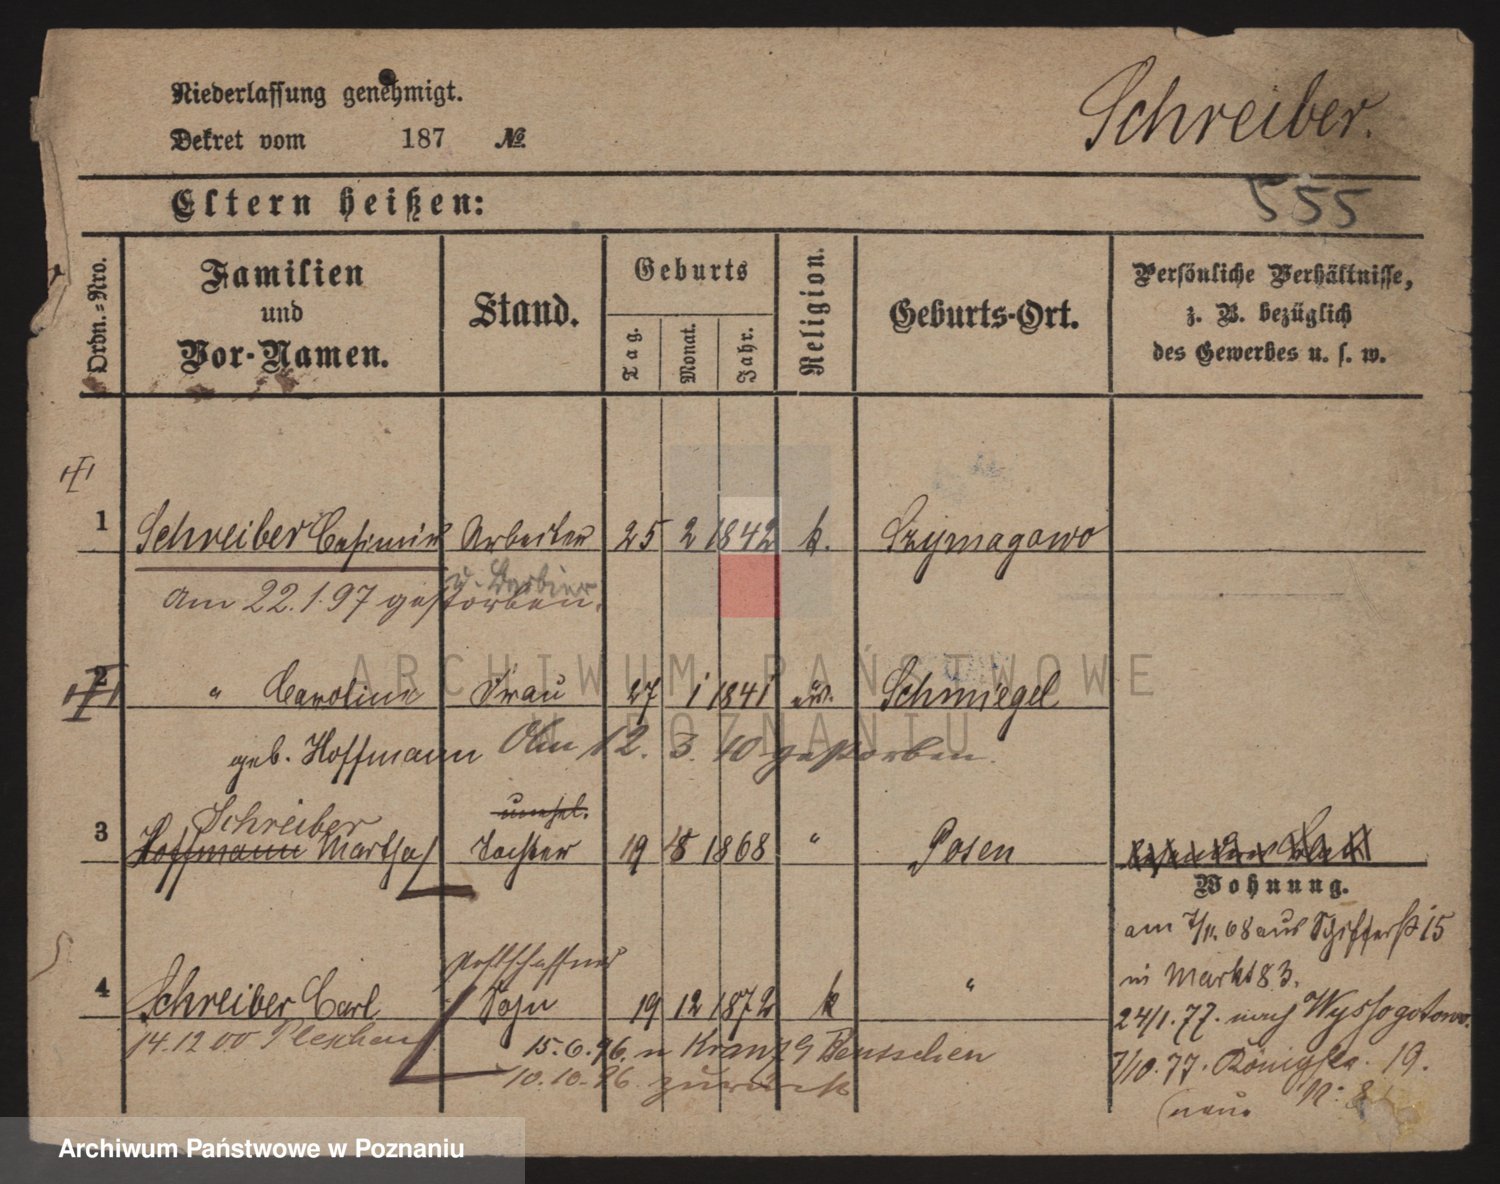 Niederlassung genehmigt.
Dekret vom 187 №
Schreiber.
555
Eltern heißen:
Ordn.-Nro.
Familien
und
Vor-Namen.
Stand.
Geburts
Tag.
Monat.
Jahr.
Religion.
Geburts-Ort.
Persönliche Verhältnisse,
z. B. bezüglich
des Gewerbes u. s. w.
1 Schreiber Casimir Arbeiter 25 2 1842 k.
u. Barbier
am 22.1.97 gestorben.
2 " Caroline Frau 27 1 1841 ev. Schmiegel
geb. Hoffmann Am 12. 3. 10 gestorben.
unehel.
Schreiber
3 Hoffmann Martha Tochter 19 8 1868 " Posen
Wohnung.
am 7/11. 68 aus Schifferstr 15
in Markt 83.
Postschaffner
4 Schreiber Carl Sohn 19 12 1872 k "
24/1. 77. nach Wyssogotowo.
14.12 00 Pleschen
15.6.96. n Kranz b Bentschen
7/10. 77. Königstr. 19.
10.10.96. zurück
neue N: 8
ARCHIWUM PAŃSTWOWE
W POZNANIU
Archiwum Państwowe w Poznaniu